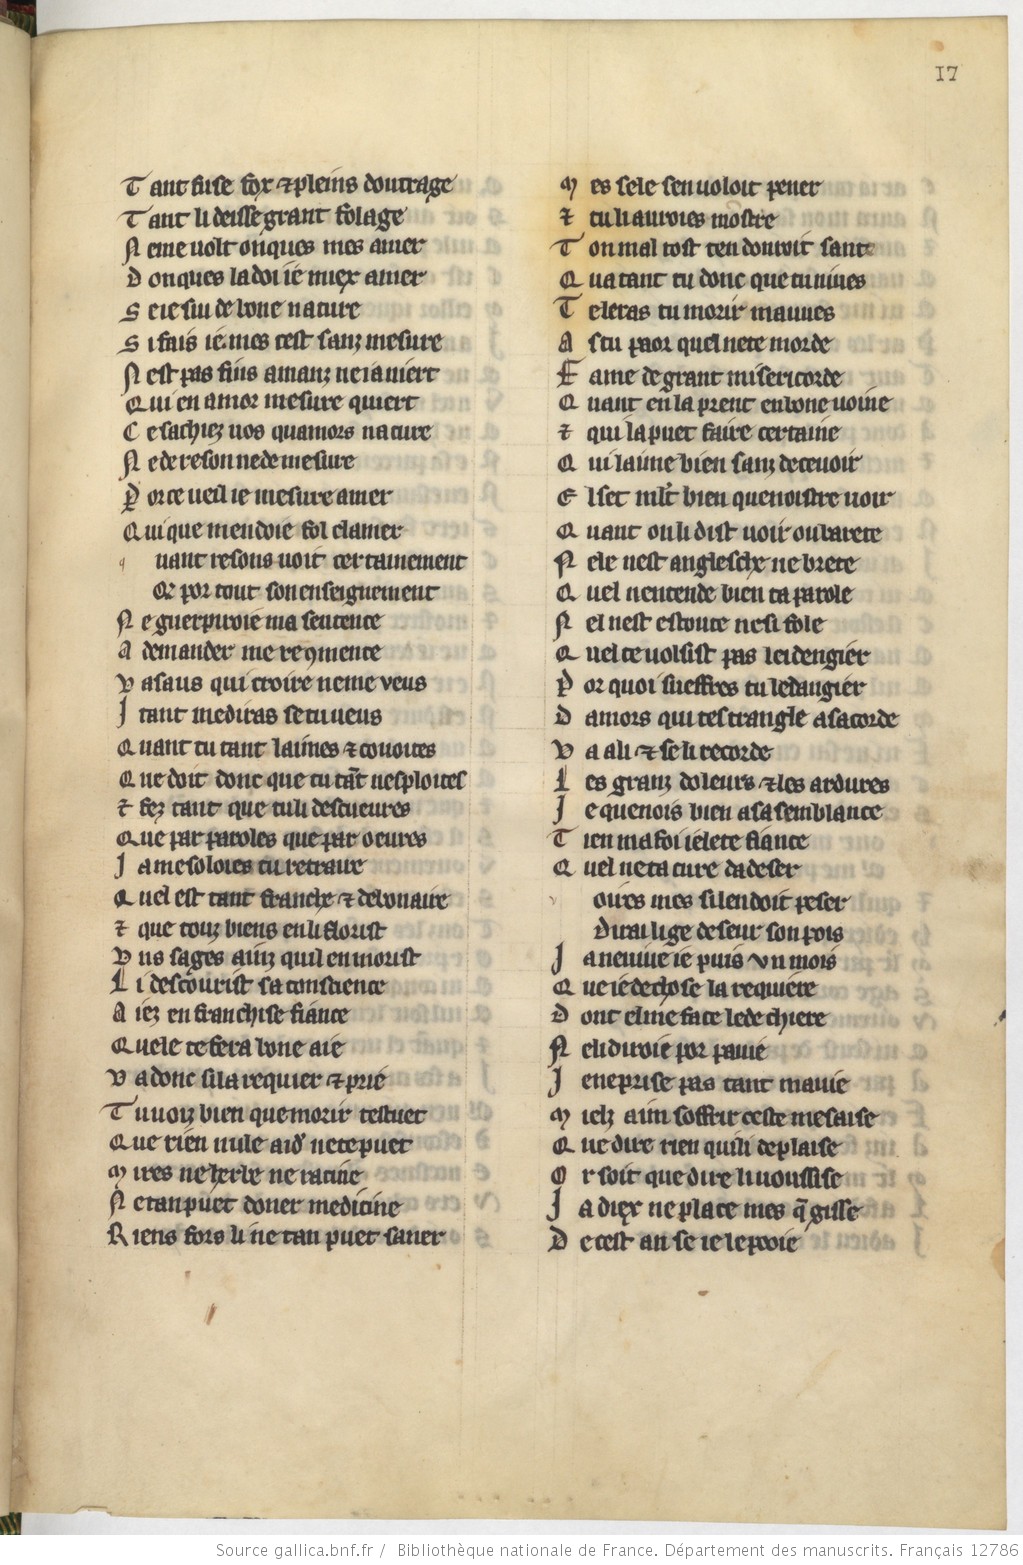 17
Tant fuse fox ⁊ pleins doutrage
Tant li deisse grant folage
Ne me volt onques mes amer
Donques la doi ie miex amer
Se ie sui de bone nature
Si fais ie mes cest sanz mesure
Nest pas fins amanz ne ia niert
Qui en amor mesure quiert
Ce sachiez vos quamors na cure
Ne de reson ne de mesure
Por ce veil ie mesure amer
Qui que men doie fol clamer
q uant resons voit certainement
Qe por tout son enseignement
Ne guerpiroie ma sentence
A demander me recommence
Vasaus qui croire ne me veus
I tant me diras se tu veus
Quant tu tant laimes ⁊ couoites
Que doit donc que tu tāt nesploites
⁊ fez tant que tu li descueures
Que par paroles que par oeures
Ia me soloies tu retraire
Quel est tant franche ⁊ debonaire
⁊ que touz biens en li florist
Uns sages ainz quil en morist
Li descourist sa conscience
Aiez en franchise fiance
Quele te fera bone aie
Va donc si la requier ⁊ prie
Tu voiz bien que morir testuet
Que rien nule aidᵉ ne te puet
Mires ne herbe ne racine
Ne ten puet doner medicine
Riens fors li ne ten puet saner
Mes sele sen voloit pener
⁊ tu li auroies mostre
Ton mal tost ten donroit sante
Qua tant tu donc que tu nines
Te leras tu morir mauues
As tu paor quel ne te morde
Fame de grant misericorde
Quant en la prent en bone voine
⁊ qui la puet faire certaine
Qui laime bien sanz decevoir
El set ml't bien quenoistre voir
Quant on li dist voir ou barete
Nele nest anglesche ne brete
Quel nentende bien ta parole
Nel nest estoute ne si fole
Quel te volsist pas leidengier
Por quoi sueffres tu ledangier
Damors qui testrangle a sa corde
Va a li ⁊ se li recorde
Les granz doleurs ⁊ les ardures
Ie quenois bien a sa semblance
Tien ma foi ie lete fiance
Quel neta cure da deser
oires mes silen doit peser
Dirai lige deseur son pois
Ia ne uiue ie puis un mois
Que ie de chose la requiere
Dont el me face lede chiere
Neli diroie por pauie
Ie ne prise pas tant ma uie
Mielz aim soffrir ceste mesaise
Que dire rien qui li deplaise
Or soit que dire li vousisse
Ia diex ne place mes q̄ gisse
De cest an se ie le pooie
Source gallica.bnf.fr / Bibliothèque nationale de France. Département des manuscrits. Français 12786